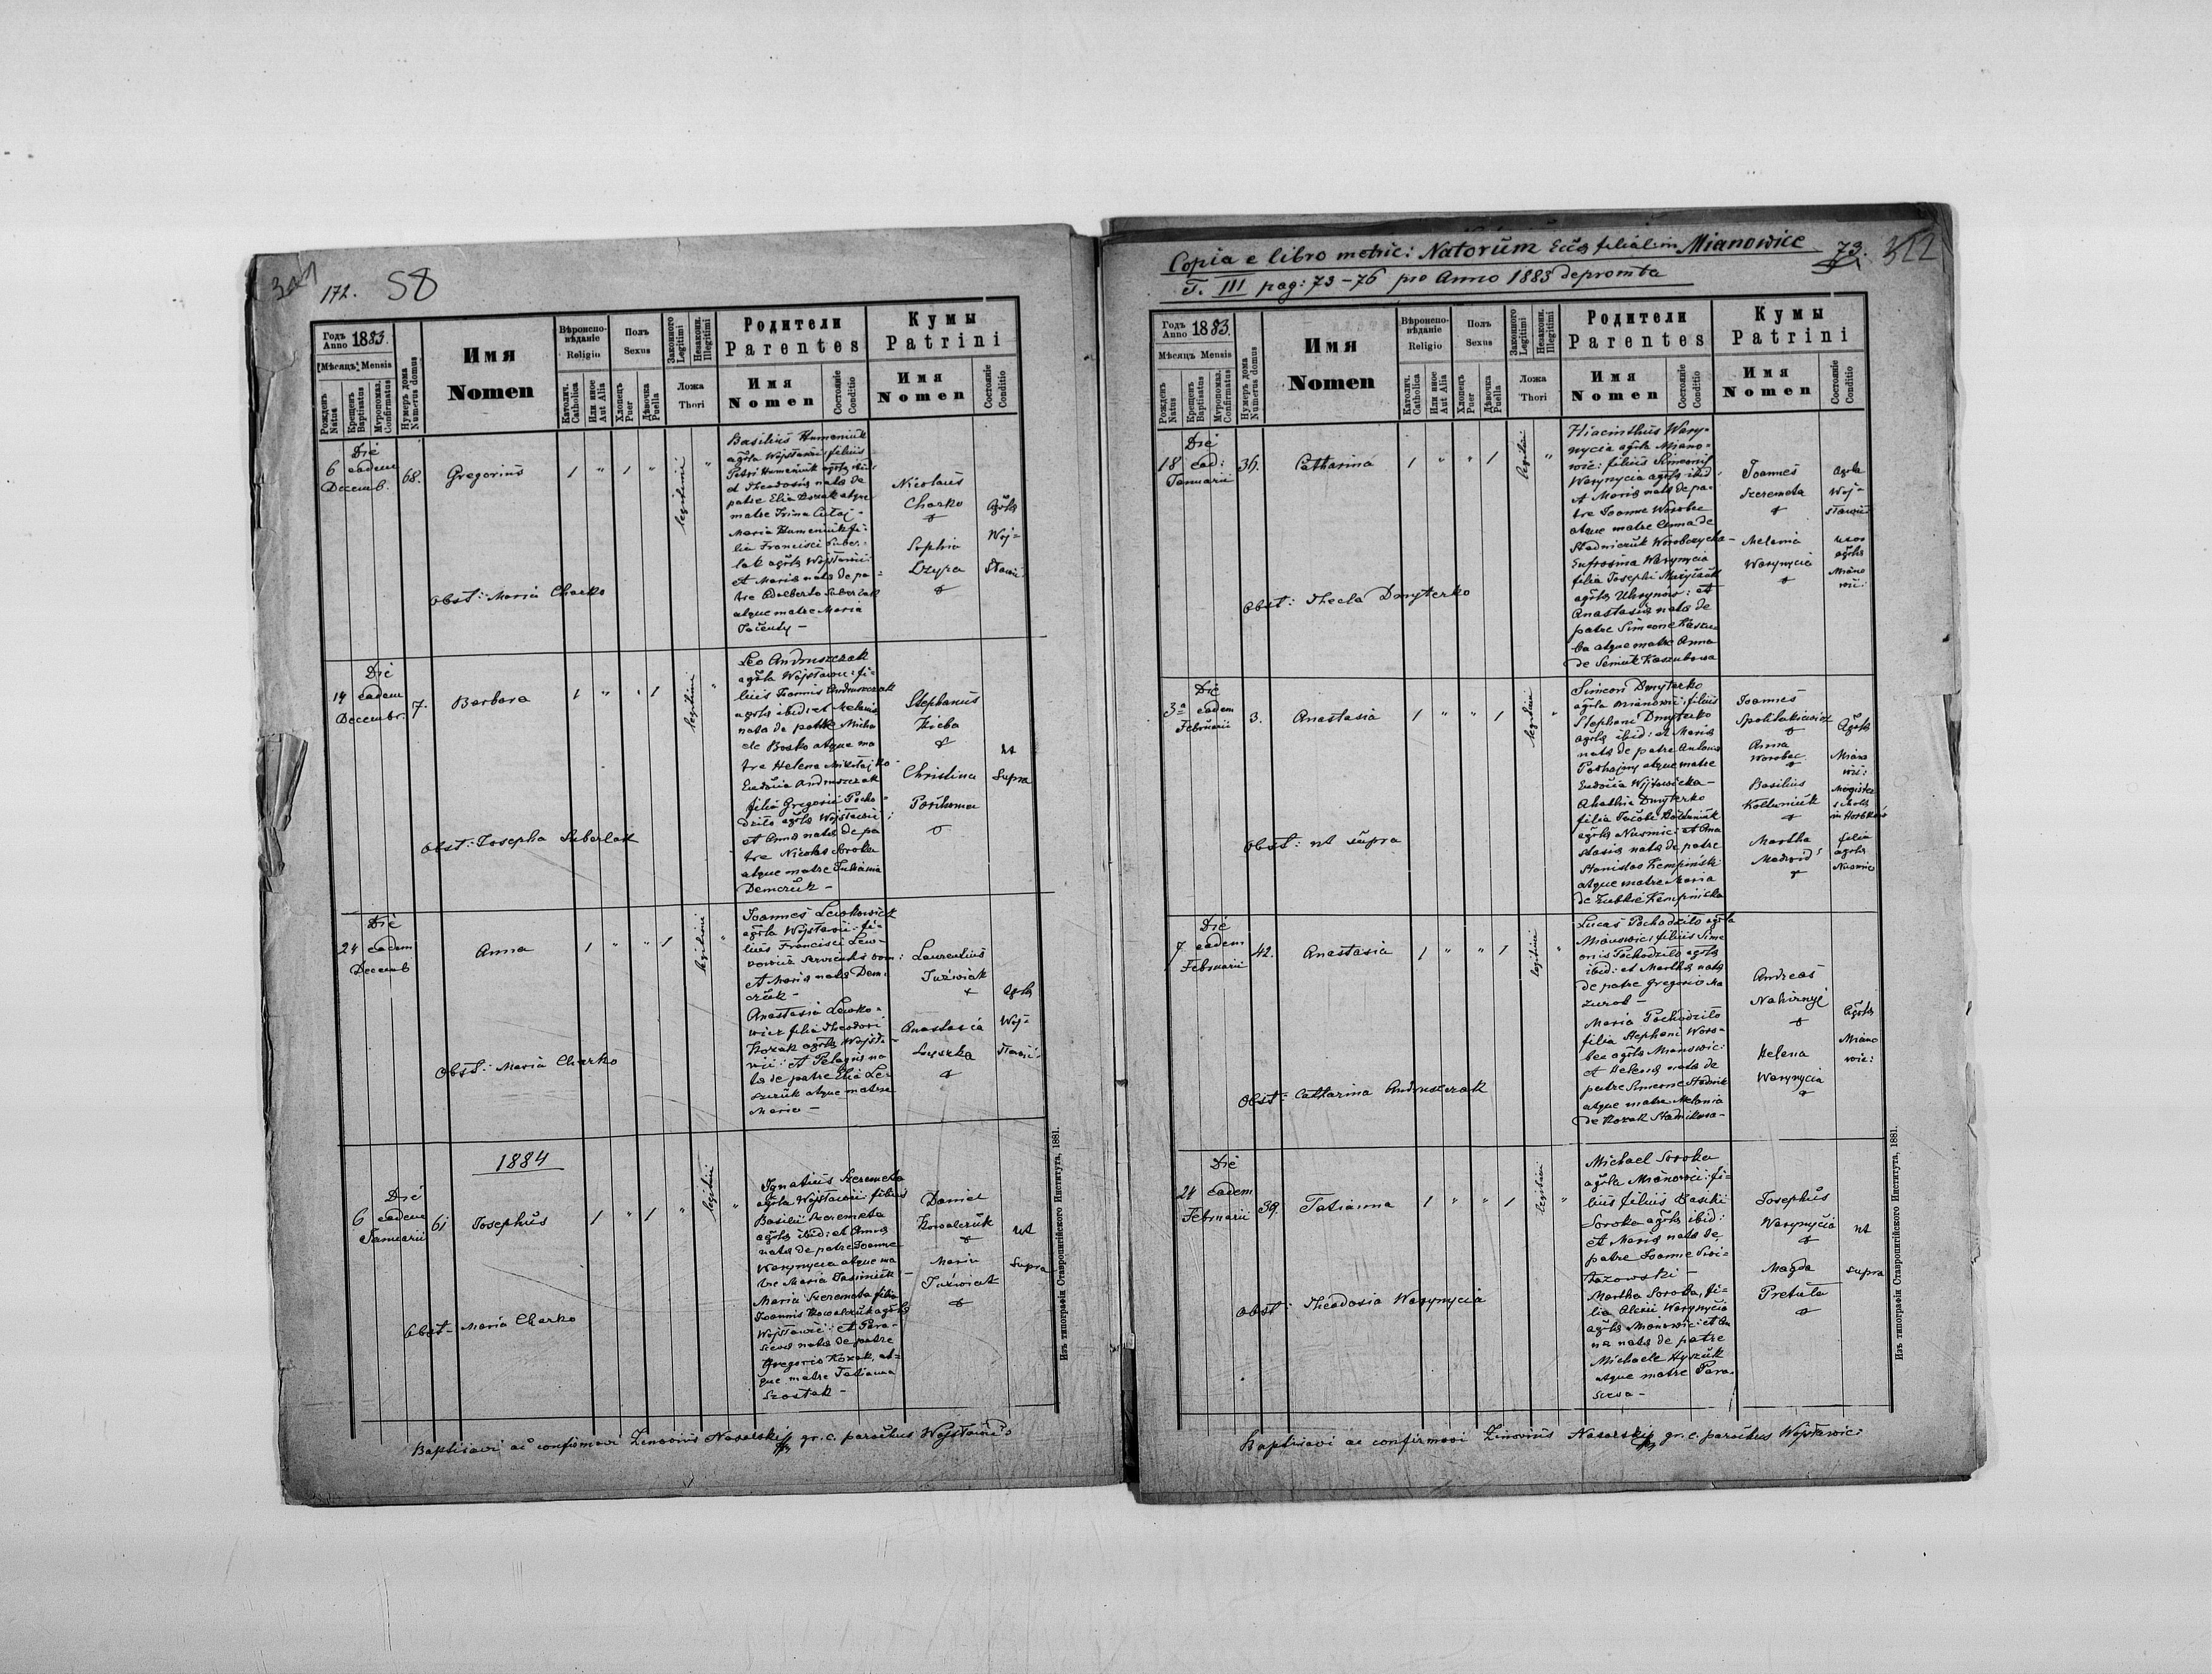 172. 58
Годъ 1883.
Anno
Мѣсяцъ Mensis
Рожденъ Natus
Крещенъ Baptisatus
Мѵропомаз. Confirmatus
Нумеръ дома Numerus domus
Имя
Nomen
Вѣроисповѣданіе
Religio
Католич. Catholica
Или иное Aut Alia
Полъ
Sexus
Хлопецъ Puer
Дѣвочка Puella
Законного Legitimi
Незаконн. Illegitimi
Ложа
Thori
Родители
Parentes
Имя
Nomen
Состояніе Conditio
Кумы
Patrini
Имя
Nomen
Состояніе Conditio
Die
6 eadem
Decemb.
68.
Gregorius
1 " 1 "
legitimi
"
Basilius Humeniuk
agrla Wojsławic: filius
Petri Humeniuk agrlae ibid:
et Theodosiae natae de
patre Elia
atque
matre Irina
Maria Humeniuk fi-
lia Francisci Suber-
lak agrlae Wojsławic:
et Mariae natae de pa-
tre Adalberto Suberlak
atque matre Maria
Nicolaus
Charko
Sophia
Dzyra
agrlae
Woj-
sławic:
Obst: Maria Charko
Die
14 eadem
Decembr.
7.
Barbara
1 " " 1
legitimi
"
Leo Andruszczak
agrla Wojsławic: fi-
lius Joannis Andruszczak
agrlae ibid: et Melaniae
natae de patre Micha-
ele Bosko atque ma-
tre Helena Mikołajko
Eudocia Andruszczak
filia Gregorii Pocho-
dziło agrlae Wojsławic:
et Annae natae de pa-
tre Nicolao Soroka
atque matre Juliania
Demczuk -
Stephanus
Christina
ut
supra
Obst: Josepha Suberlak
Die
24 eadem
Decemb
Anna
1 " " 1
legitimi
"
Joannes Lewkowicz
agrla Wojsławic: fi-
lius Francisci Lew-
kowicz
et Mariae natae Dem-
czuk -
Anastasia Lewko-
wicz filia Theodori
Kozak agrlae Wojsła-
wic: et Pelagiae na-
tae de patre Elia Le-
szczuk atque matre
Maria -
Laurentius
Juźwiak
Anastasia
Łyszka
agrlae
Woj-
sławic:
Obst: Maria Charko
1884
Die
6 eadem
Januarii
61
Josephus
1 " 1 "
legitimi
"
Ignatius Szeremeta
agrla Wojsławic: filius
Basilii Szeremeta
agrlae ibid: et Annae
natae de patre Joanne
Warynycia atque ma-
tre Maria
Maria Szeremeta filia
Joannis Kowalczuk agrlae
Wojsławic: et Para-
scevae natae de patre
Gregorio Kozak, at-
que matre Tatianna
Szostak -
Daniel
Kowalczuk
Maria
Juźwiak
ut
supra
Obst - Maria Charko
Baptisavi ac confirmavi Zinovius Nasalskij gr. c. parochus Wojsławic:
Изъ типографіи Ставропигійского Института, 1881.
Copia e libro metric: Natorum Eccl filialim Mianowice 73. 322
T. III pag: 73-76 pro Anno 1883 depromta
Годъ 1883.
Anno
Мѣсяцъ Mensis
Рожденъ Natus
Крещенъ Baptisatus
Мѵропомаз. Confirmatus
Нумеръ дома Numerus domus
Имя
Nomen
Вѣроисповѣданіе
Religio
Католич. Catholica
Или иное Aut Alia
Полъ
Sexus
Хлопецъ Puer
Дѣвочка Puella
Законного Legitimi
Незаконн. Illegitimi
Ложа
Thori
Родители
Parentes
Имя
Nomen
Состояніе Conditio
Кумы
Patrini
Имя
Nomen
Состояніе Conditio
Die
18 ead:
Januarii
36.
Catharina
1 " " 1
legitimi
"
Hiacinthus Wary-
nycia agrla Miano-
wic: filius Simeonis
Warynycia agrlae ibid:
et Mariae natae de pa-
tre Joanne Worobec
atque matre Anna de
Eufrosina Warynycia
filia Josephi
agrlae Uhrynów: et
Anastasiae natae de
patre Simeone Kaszu-
ba atque matre Anna
de Semiuk Kaszubowa
Joannes
Szeremeta
Melania
Warynycia
agrla
Woj-
sławic:
uxor
agrlae
Miano
wic:
Obst: Thecla Dmyterko
Die
3a eadem
Februarii
3.
Anastasia
1 " " 1
legitimi
"
Simeon Dmyterko
agrla Mianowic: filius
Stephani Dmyterko
agrlae ibid: et Mariae
natae de patre Antonio
atque matre
Eudocia Wojtowicka -
Dmyterko
filia Jacobi
agrlae Nusmic: et Ana-
stasiae natae de patre
Stanislao Kempinski
atque matre Maria
de Zubkie Kempinska
Joannes
Anna
Worobec
Basilius
Martha
agrlae
Miano
wic:
Magister
scholae
filia
agrlae
Nusmic:
Obst: ut supra
Die
7 eadem
Februarii
42.
Anastasia
1 " " 1
legitimi
"
Lucas Pochodziło agrla
Mianowic: filius Sime-
onis Pochodziło agrlae
ibid: et Marthae natae
de patre Gregorio Ma-
zurok -
Maria Pochodziło
filia Stephani Woro-
bec agrlae Mianowic:
et Helenae natae de
patre Simeone Stadnik
atque matre Melania
de Kozak Stadnikowa -
Andreas
Nahirnyj
Helena
Warynycia
agrlae
Miano
wic:
Obst: Catharina Andruszczak
Die
24 eadem
Februarii
39.
Tatianna
1 " " 1
legitimi
"
Michael Soroka
agrla Mianowic: fi-
lius filius Basilii
Soroka agrlae ibid:
et Mariae natae de
patre Joanne
Martha Soroka, fi-
lia Alexii Warynycia
agrlae Mianowic: et An-
na natae de patre
Michaele Hyszuk
atque matre Para-
sceva -
Josephus
Warynycia
Magda
Pretula
ut
supra
Obst: Theodosia Warynycia
Baptisavi ac confirmavi Zinovius Nasalskij gr. c. parochus Wojsławic:
Изъ типографіи Ставропигійского Института, 1881.